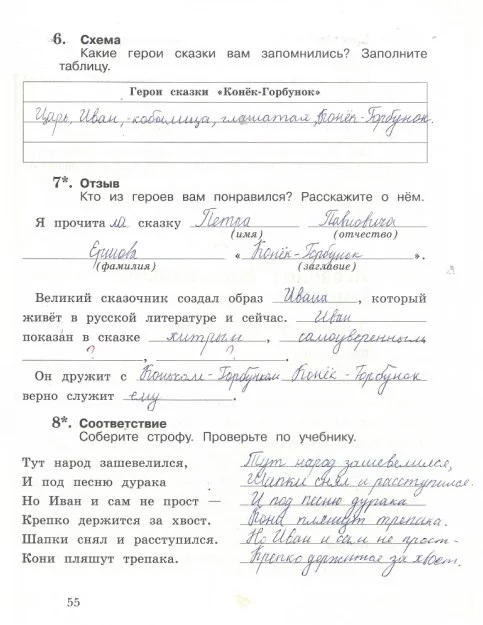 6. Схема
Какие герои сказки вам запомнились? Заполните
таблицу.
Герои сказки «Конёк-Горбунок»
Царь, Иван, кобылица, глашатая, Конёк-Горбунок.
7*. Отзыв
Кто из героев вам понравился? Расскажите о нём.
Я прочитала сказку Петра Павловича
(имя) (отчество)
Ершова « Конёк-Горбунок ».
(фамилия) (заглавие)
Великий сказочник создал образ Ивана, который
живёт в русской литературе и сейчас. Иван
показан в сказке хитрым, самоуверенным
?, ?.
Он дружит с Коньком-Горбунком Конёк-Горбунок
верно служит ему.
8*. Соответствие
Соберите строфу. Проверьте по учебнику.
Тут народ зашевелился, Тут народ зашевелился,
И под песню дурака Шапки снял и расступился.
Но Иван и сам не прост — И под песню дурака
Крепко держится за хвост. Кони пляшут трепака.
Шапки снял и расступился. Но Иван и сам не прост-
Кони пляшут трепака. Крепко держится за хвост.
55